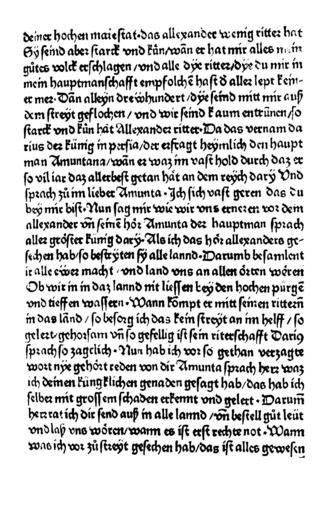 deiner hochen maiestat·das allexander wenig ritter hat
Sy seind aber starck vnd kůn/wañ er hat mir alles mein
gůtes volck erschlagen/vnd alle dye ritter/dye du mir in
mein hauptmanschafft empfolchẽ hast d̕ aller lept kein⸗
er mer·Dañ alleyn drewhundert/dye seind mitt mir auß
dem streyt geflochen/vnd wir seind kaum entrũnen/so
starck vnd kůn hat Allexander ritter·Da das vernam da
rius der kũnig in persia/der erfragt heymlich den haupt
man Amuntana/wañ er waz im vast hold durch daz er
so vil iar daz allerbest getan hãt an dem reych dary Vnd
sprach zů im lieber Amunta·Ich sich vast geren das du
bey mir bist·Nun sag mir wie wir vns erneren vor dem
allexander vñ seinẽ hör Amunta der hauptman sprach
aller gröster kũnig dary·Als ich das hör allexanders ge⸗
sechen hab/so bestrytten sy alle lannd·Darumb besamlent
ir alle ewer macht·vnd land vns an allen orten wören
Ob wir in in daz lannd nit liessen bey den hochen pũrgẽ
vnd tieffen wassern·Wann kompt er mitt seinen rittern
in das lãnd/so besorg ich das kein streyt an im helff/so
gelert·gehorsam vñ so gefellig ist sein ritterschafft Dariꝰ
sprach so zagclich·Nun hab ich vor so gethan verzagte
wort nye gehört reden von dir Amunta sprach herr waz
ich deinen kũngklichen genaden gesagt hab/das hab ich
selber mit grossem schaden erkennt vnd gelert·Darum̃
herr rat ich dir send auß in alle lannd/vñ bestell gůt leüt
vnd laß vns wören/wann es ist erst rechte not·Wann
was ich vor zů streyt gesechen hab/das ist alles gewesen